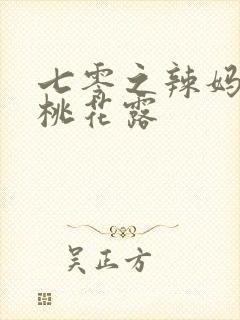 七零之辣妈
桃花露
吴正方